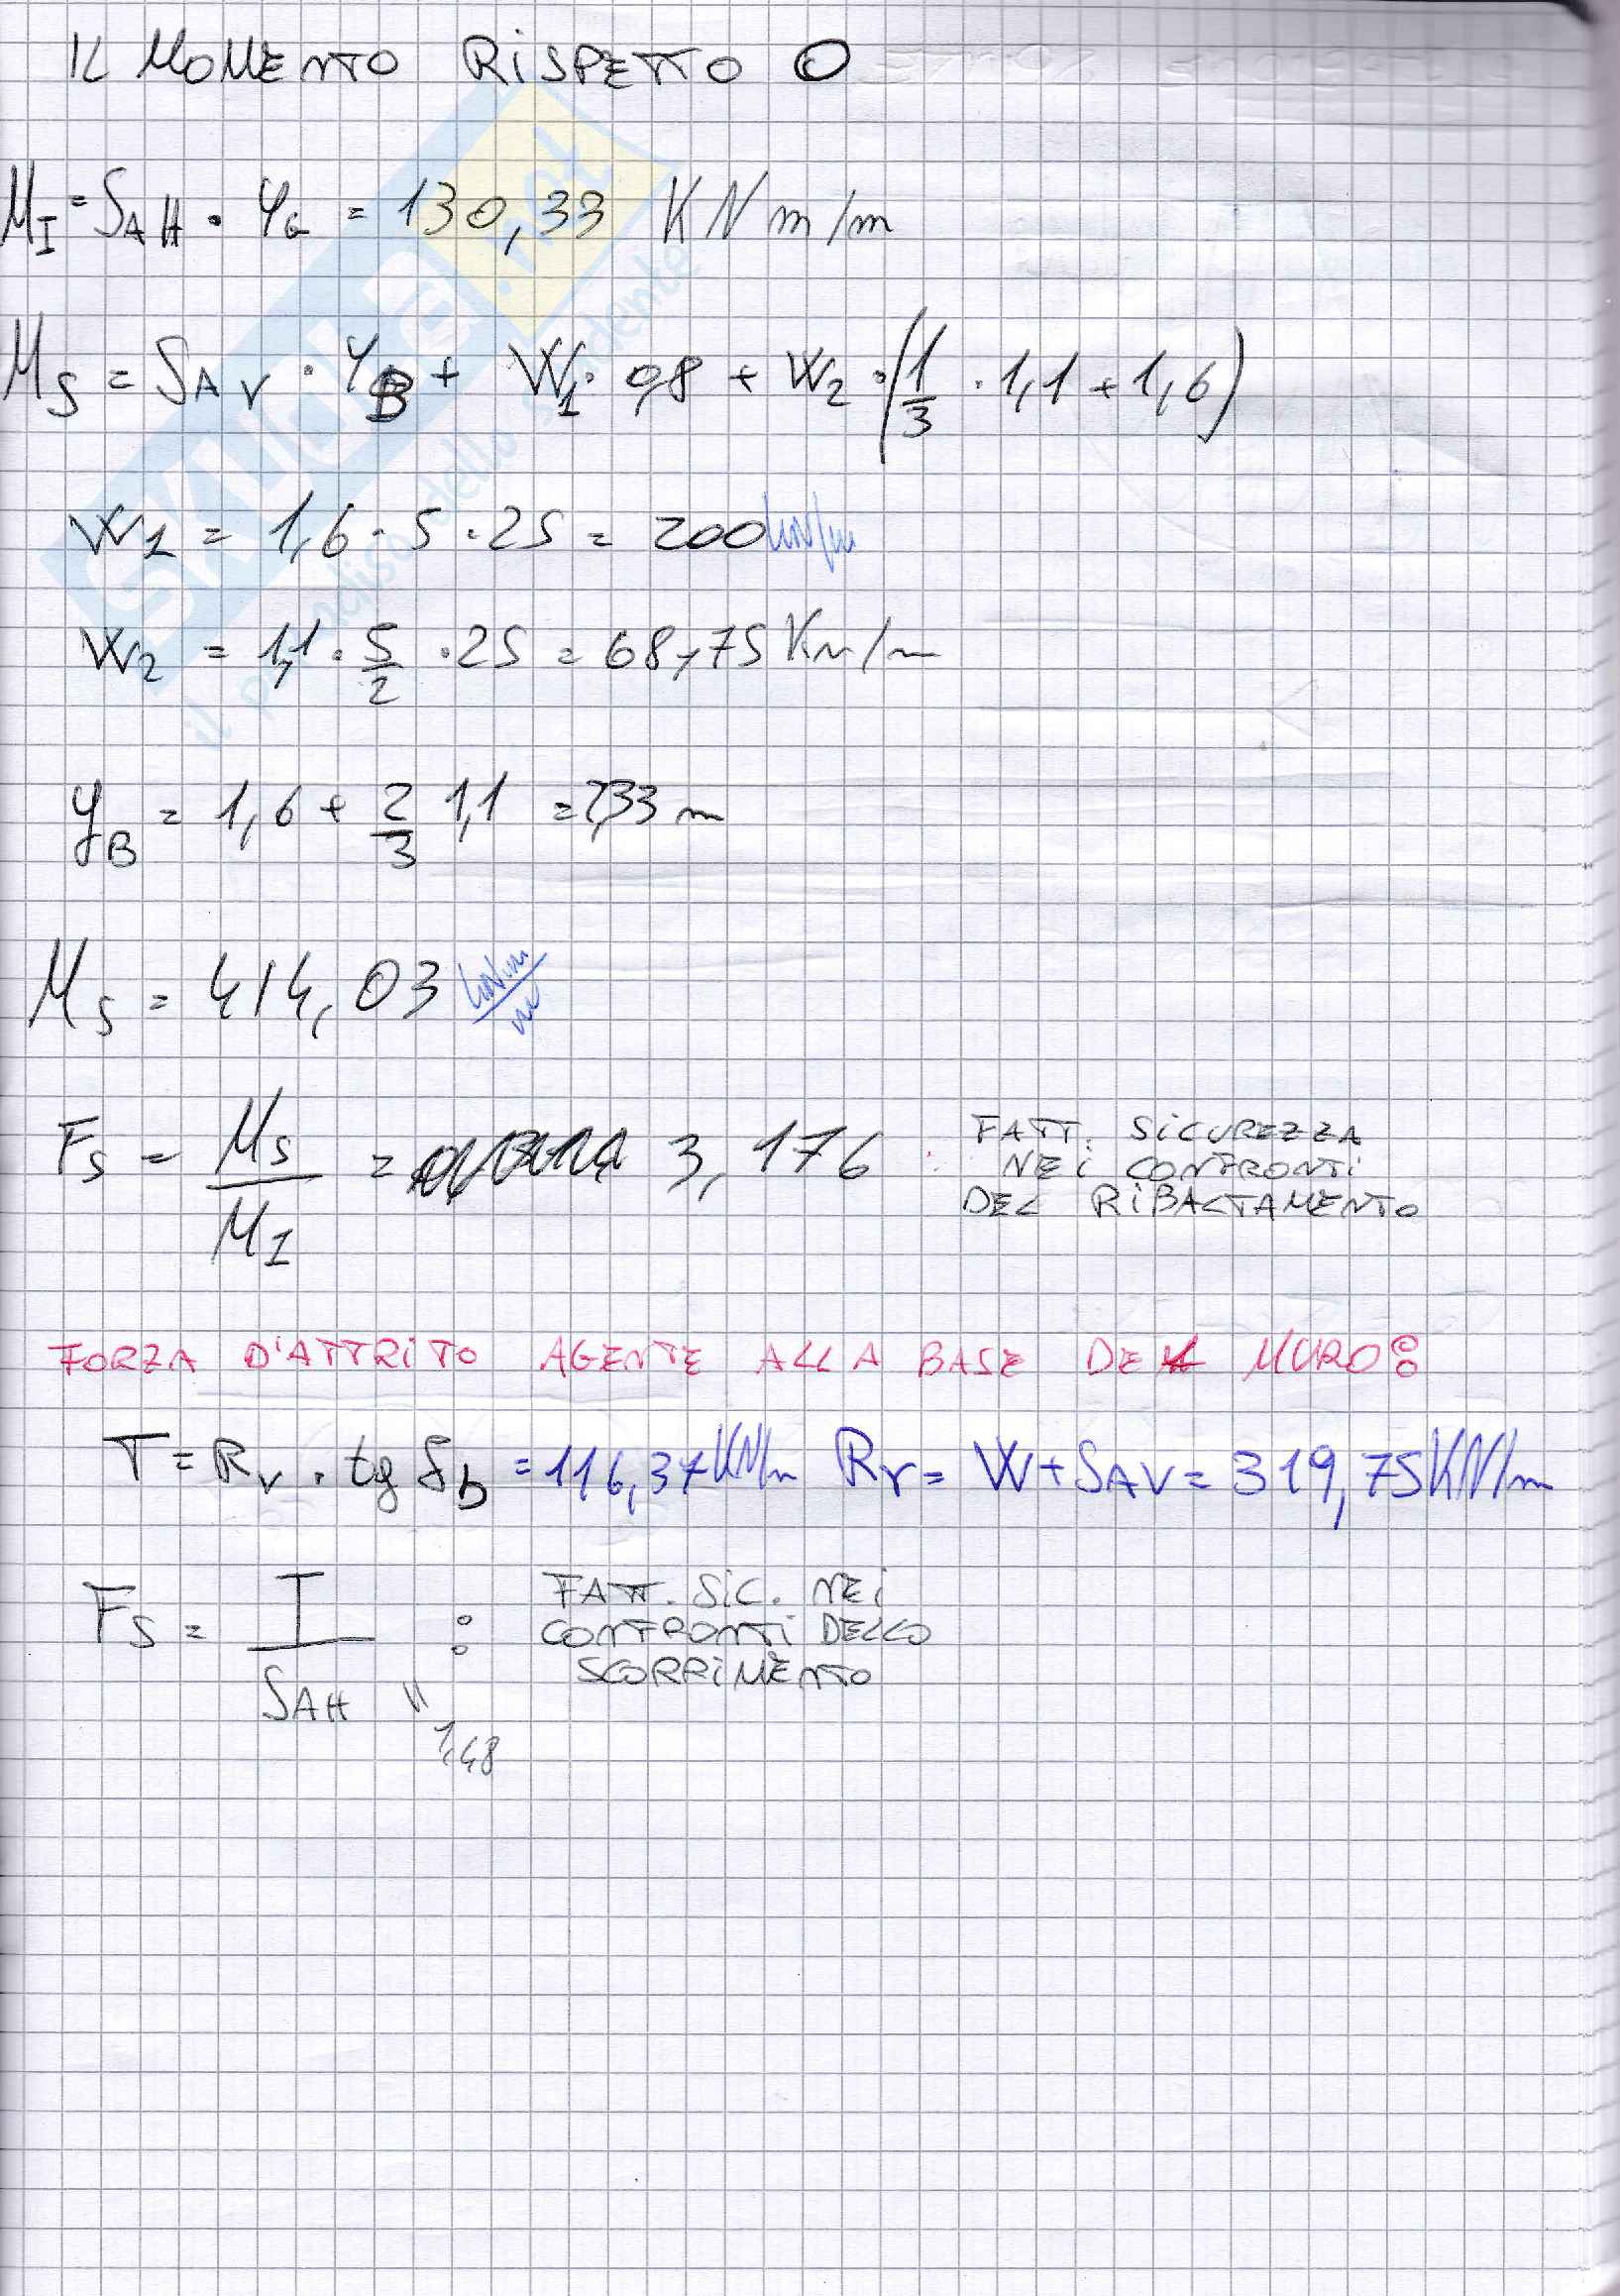 IL MOMENTO RISPETTO O
M_I = S_AH · y_a = 130,33 KN m/m
M_S = S_AV · y_B + W_1 · 0,8 + W_2 · (1/3 · 1,1 + 1,6)
W_1 = 1,6 · 5 · 25 = 200 kN/m
W_2 = 1,1 · 5/2 · 25 = 68,75 KN/m
y_B = 1,6 + 2/3 1,1 = 2,33 m
M_S = 414,03 kN·m/m
F_S = M_S/M_I = 3,176 : FATT. SICUREZZA
NEI CONFRONTI
DEL RIBALTAMENTO
FORZA D'ATTRITO AGENTE ALLA BASE DEL MURO:
T = R_V · tg δ_b = 116,37 KN/m R_V = W + S_AV = 319,75 KN/m
F_S = T/S_AH = 1,48 : FATT. SIC. NEI
CONFRONTI DELLO
SCORRIMENTO
SKUOLA.net
il paradiso dello studente